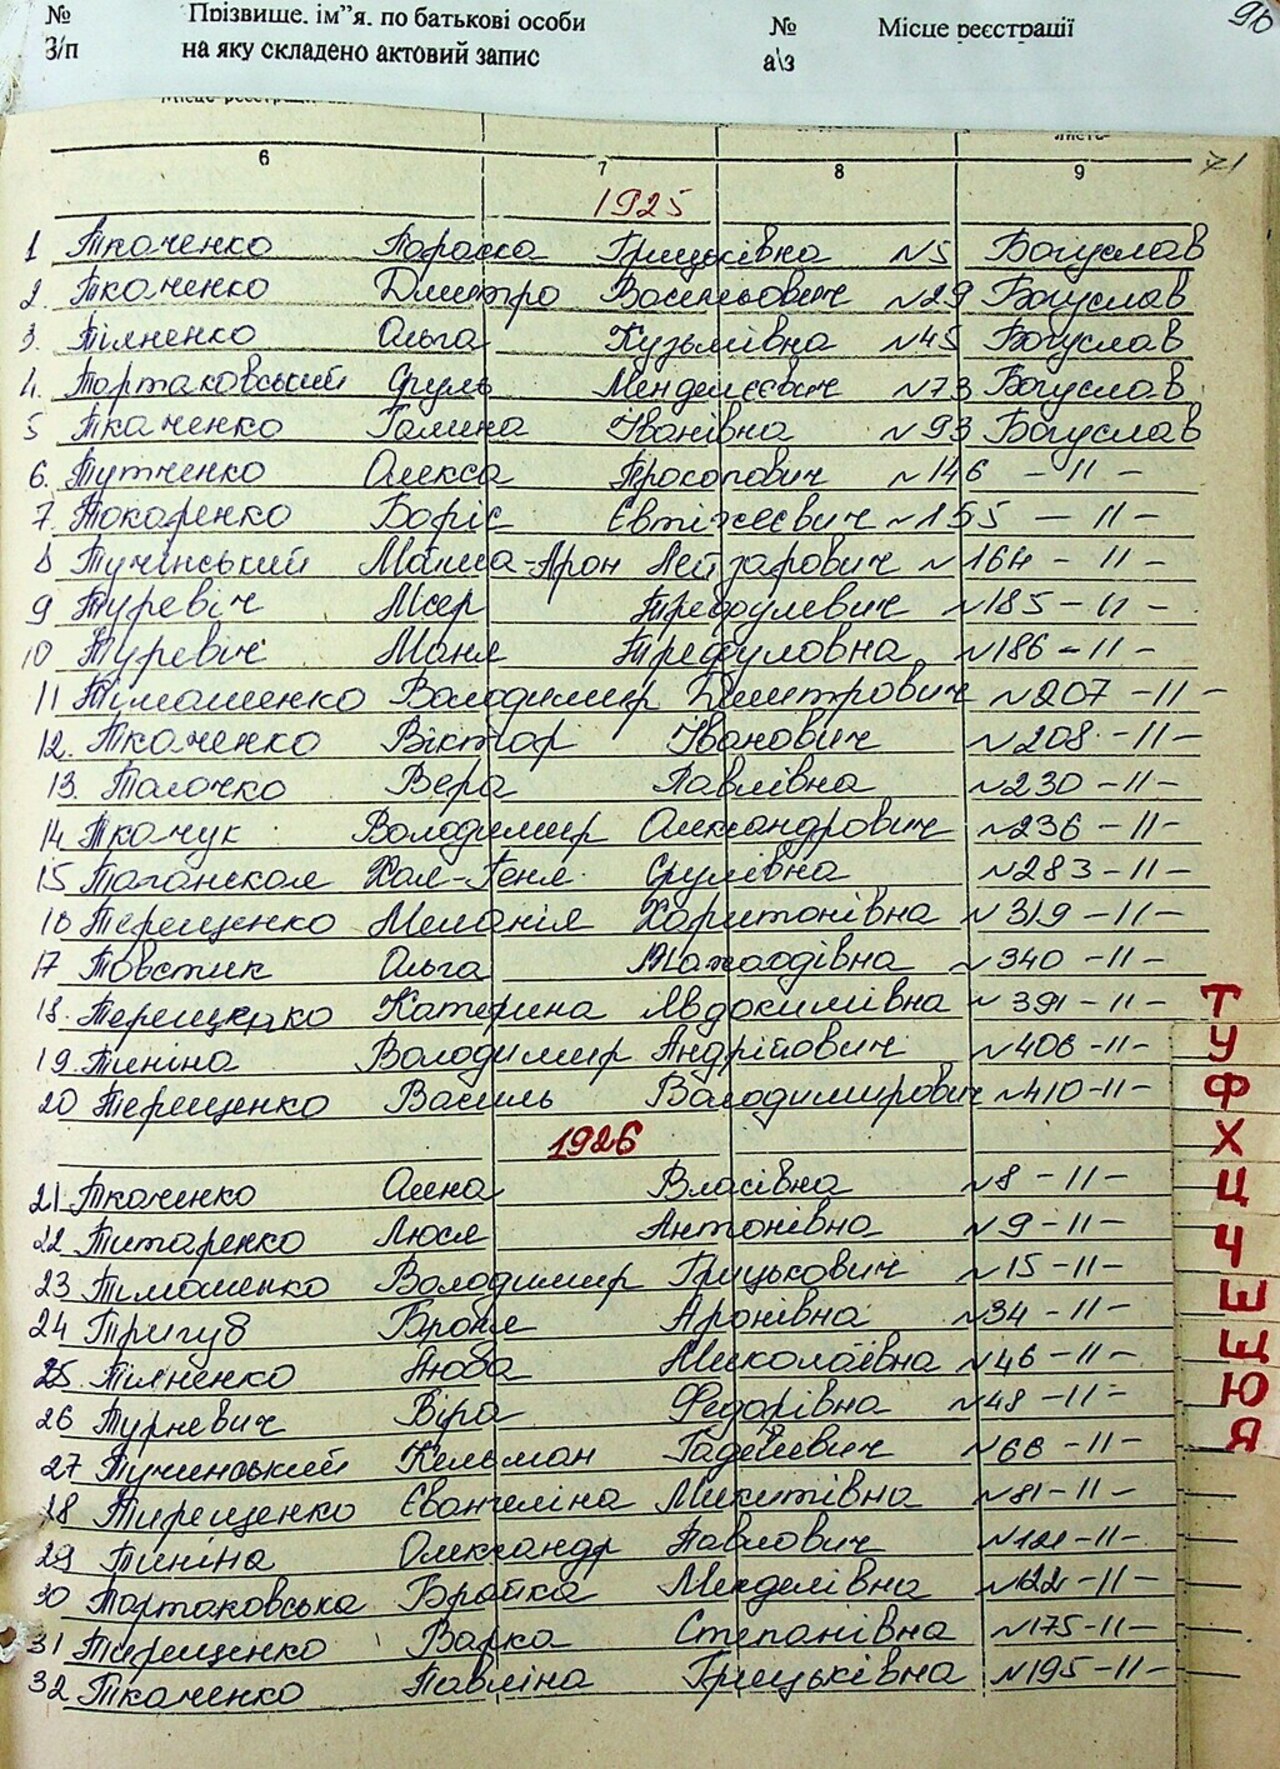 № Прізвище, ім”я, по батькові особи № Місце реєстрації 96
З/п на яку складено актовий запис а\з
6 7 8 9 71
1925
1 Ткаченко Параска Грицьківна №5 Богуслав
2. Ткаченко Дмитро Васильович №29 Богуслав
3. Тілненко Ольга Кузьмівна №45 Богуслав
4. Тартаковський Сруль Менделєєвич №73 Богуслав
5 Ткаченко Галина Іванівна №93 Богуслав
6. Тутченко Олекса Прокопович №146 -11-
7. Токаренко Боріс №155 -11-
8 Тучінський Мойша-Арон Лейзарович №164 -11-
9 Туревіч Мєер №185-11-
10 Туревіч Маня №186-11-
11 Тімошенко Володимир Дмитрович №207 -11-
12. Ткаченко Віктор Іванович №208 -11-
13. Талочко Вера Павлівна №230-11-
14 Ткачук Володимир Олександрович №236-11-
15 Таганская Хая-Геня Срулівна №283-11-
16 Терещенко Меланія Харитонівна №319-11-
17 Товстик Ольга №340 -11-
18. Терещенко Катерина Явдокимівна №391-11-
19. Тиніна Володимир Андрійович №406-11-
20 Терещенко Василь Володимирович №410-11-
1926
21 Ткаченко Анна Власівна №8 -11-
22 Титаренко Люся Антонівна №9-11-
23 Тімошенко Володимир Грицькович №15-11-
24 Тригуб Броня Аронівна №34-11-
25. Тілненко Люба Миколаївна №46-11-
26 Турневич Віра Федорівна №48-11-
27 Тучинський Кельман №66-11-
28 Тирещенко Євангеліна Микитівна №81-11-
29 Тиніна Олександр Павлович №121-11-
30 Тартаковська Бройка Менделівна №122-11-
31 Тирещенко Варка Степанівна №175-11-
32 Ткаченко Павліна Грицьківна №195-11-
Т
У
Ф
Х
Ц
Ч
Ш
Щ
Ю
Я